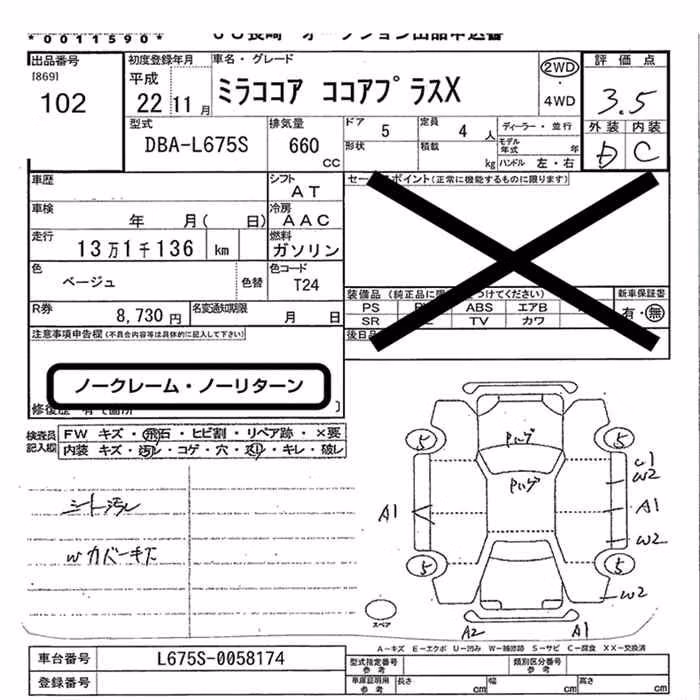 *0011590*
JU長崎 オークション出品申込書
出品番号
[869]
102
初度登録年月
平成
22 11月
車名・グレード
ミラココア ココアプラスX
2WD
・
4WD
評価点
3.5
外装 内装
D C
型式
DBA-L675S
排気量
660
CC
ドア 5
定員 4 人
形状
積載 kg
ディーラー・並行
モデル年式 年
ハンドル 左・右
車歴
シフト
AT
車検
年 月( 日)
冷房
AAC
走行
13万1千136 km
燃料
ガソリン
色
ベージュ
色替
色コード
T24
R券
8,730 円
名変通知期限
月 日
セールスポイント(正常に機能するものに限ります)
装備品
PS ABS エアB
SR TV カワ
新車保証書
有・無
後日品
注意事項申告欄(不具合内容等は具体的に記入して下さい)
ノークレーム・ノーリターン
修復歴 有で箇所 〕
検査員記入欄
FW キズ・飛石・ヒビ割・リペア跡・×要
内装 キズ・汚レ・コゲ・穴・スリ・キレ・破レ
シート汚レ
Wカバーキズ
5 5
U1
W2
A1 A1
W2
5 5
W2
スペア
A2 A1
A-キズ E-エクボ U-凹み W-補修跡 S-サビ C-腐食 XX-交換済
車台番号
L675S-0058174
登録番号
型式指定番号
参考
類別区分番号
参考
車庫証明用
参考
長さ cm
幅 cm
高さ cm